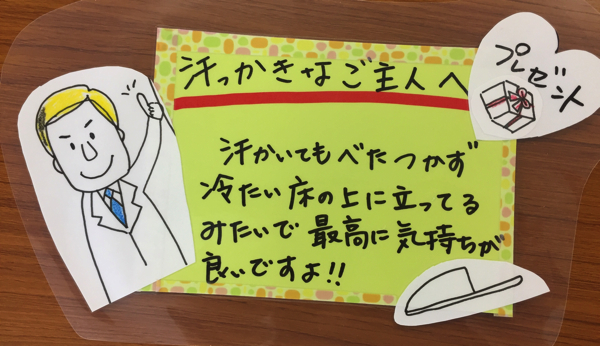 汗っかきなご主人へ
プレゼント
汗かいてもべたつかず
冷たい床の上に立ってる
みたいで最高に気持ちが
良いですよ!!